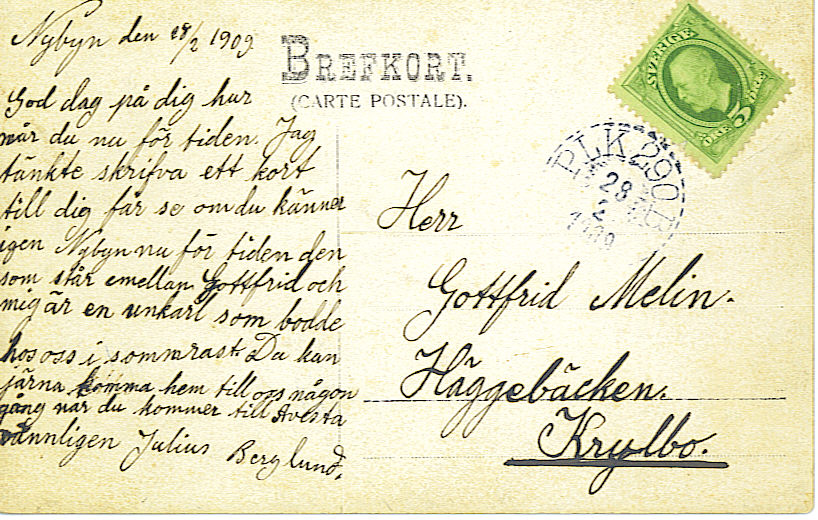 Nybyn den 28/2 1909
BREFKORT.
(CARTE POSTALE).
God dag på dig hur
mår du nu för tiden. Jag
tänkte skrifva ett kort
till dig får se om du känner
igen Nybyn nu för tiden den
som står emellan Gottfrid och
mig är en unkarl som bodde
hos oss i sommrast Du kan
järna komma hem till oss någon
gång när du kommer till Avesta
vännligen Julius Berglund.
SVERIGE
5 ÖRE
PLK 290
28
2
1909
Herr
Gottfrid Melin.
Häggebäcken.
Krylbo.